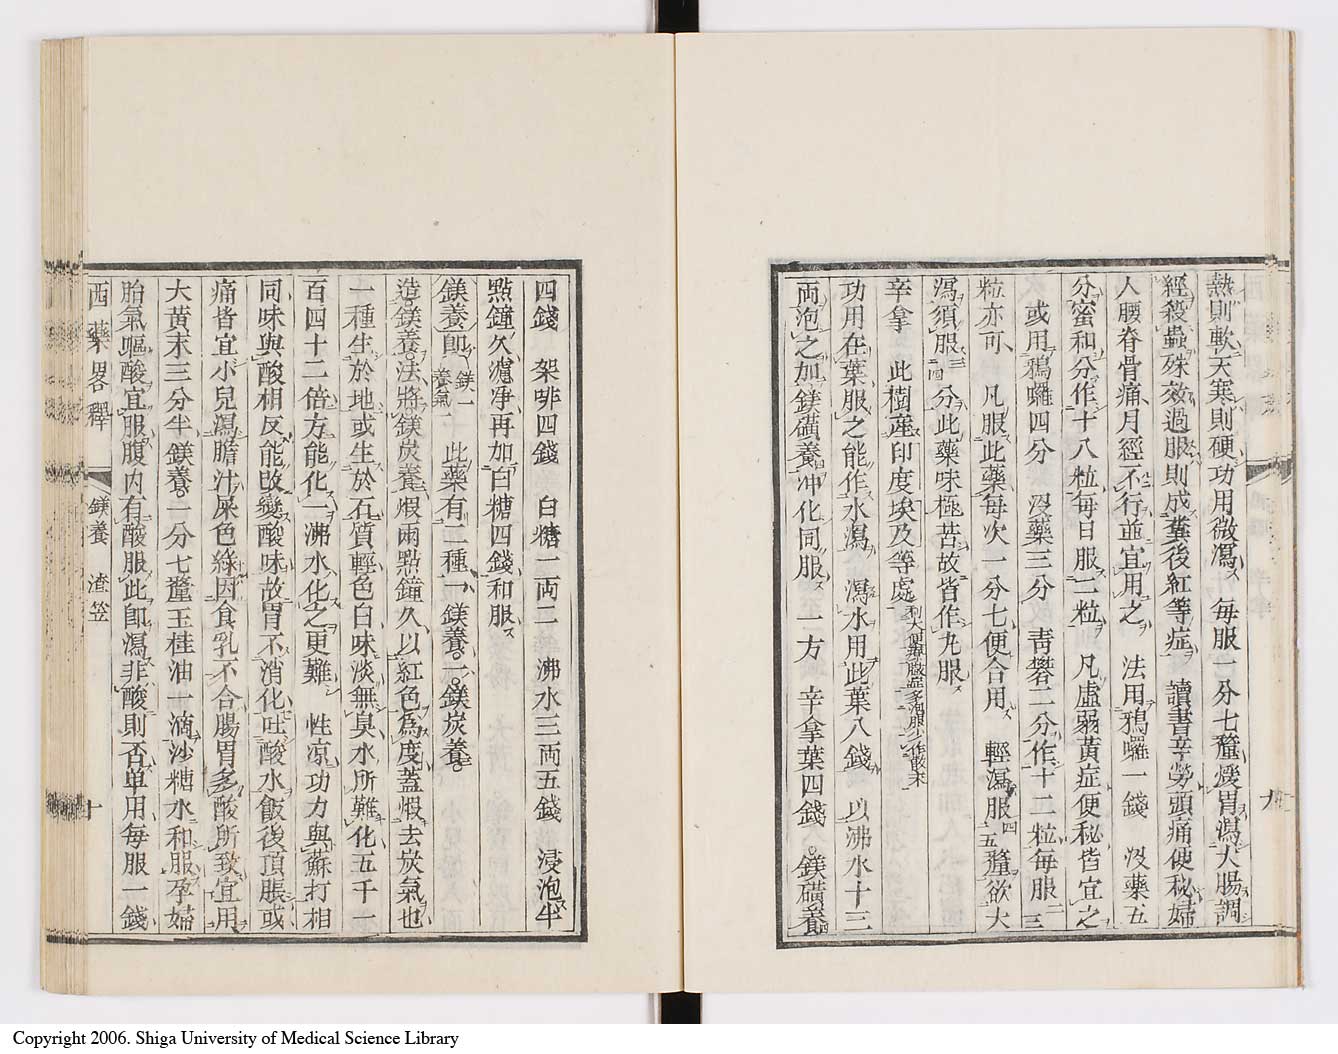 熱則軟天寒則硬功用微瀉 每服一分七釐煖胃瀉大腸調
經殺蟲殊效過服則成糞後紅等症 讀書辛勞頭痛便秘婦
人腰脊骨痛月經不行並宜用之 法用鴉囉一錢 沒藥五
分蜜和分作十八粒每日服二粒 凡虛弱黃症便秘皆宜之
或用鴉囉四分 沒藥三分 青礬二分作十二粒每服二三
粒亦可 凡服此藥每次一分七便合用 輕瀉服四五釐欲大
瀉須服三四分此藥味極苦故皆作丸服
辛拿 此樹產印度埃及等處
功用在葉服之能作水瀉 瀉水用此葉八錢 以沸水十三
両泡之加鎂磺養冲化同服 一方 辛拿葉四錢 鎂磺養
九
四錢 架啡四錢 白糖一両二 沸水三両五錢 浸泡半
點鐘久濾凈再加白糖四錢和服
鎂養卽鎂一養氣一 此藥有二種一鎂養一鎂炭養
造鎂養法將鎂炭養煅兩點鐘久以紅色為度蓋煅去炭氣也
一種生於地或生於石質輕色白味淡無臭水所難化五千一
百四十二倍方能化一沸水化之更難 性凉功力與蘇打相
同味與酸相反能改變酸味故胃不消化吐酸水飯後頂脹或
痛皆宜小兒瀉膽汁屎色綠因食乳不合腸胃多酸所致宜用
大黃末三分半鎂養二分七釐玉桂油一滴沙糖水和服孕婦
胎氣嘔酸宜服腹內有酸服此卽瀉非酸則否单用每服一錢
西藥畧釋 鎂養 渣笠 十
Copyright 2006. Shiga University of Medical Science Library